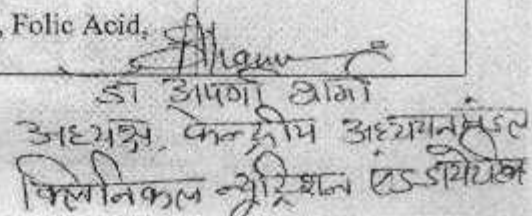 , Folic Acid,
डा अपर्णा
अध्यक्ष, केन्द्रीय अध्ययनमंडल
क्लिनिकल न्यूट्रिशन एंड डायटेटिक्स